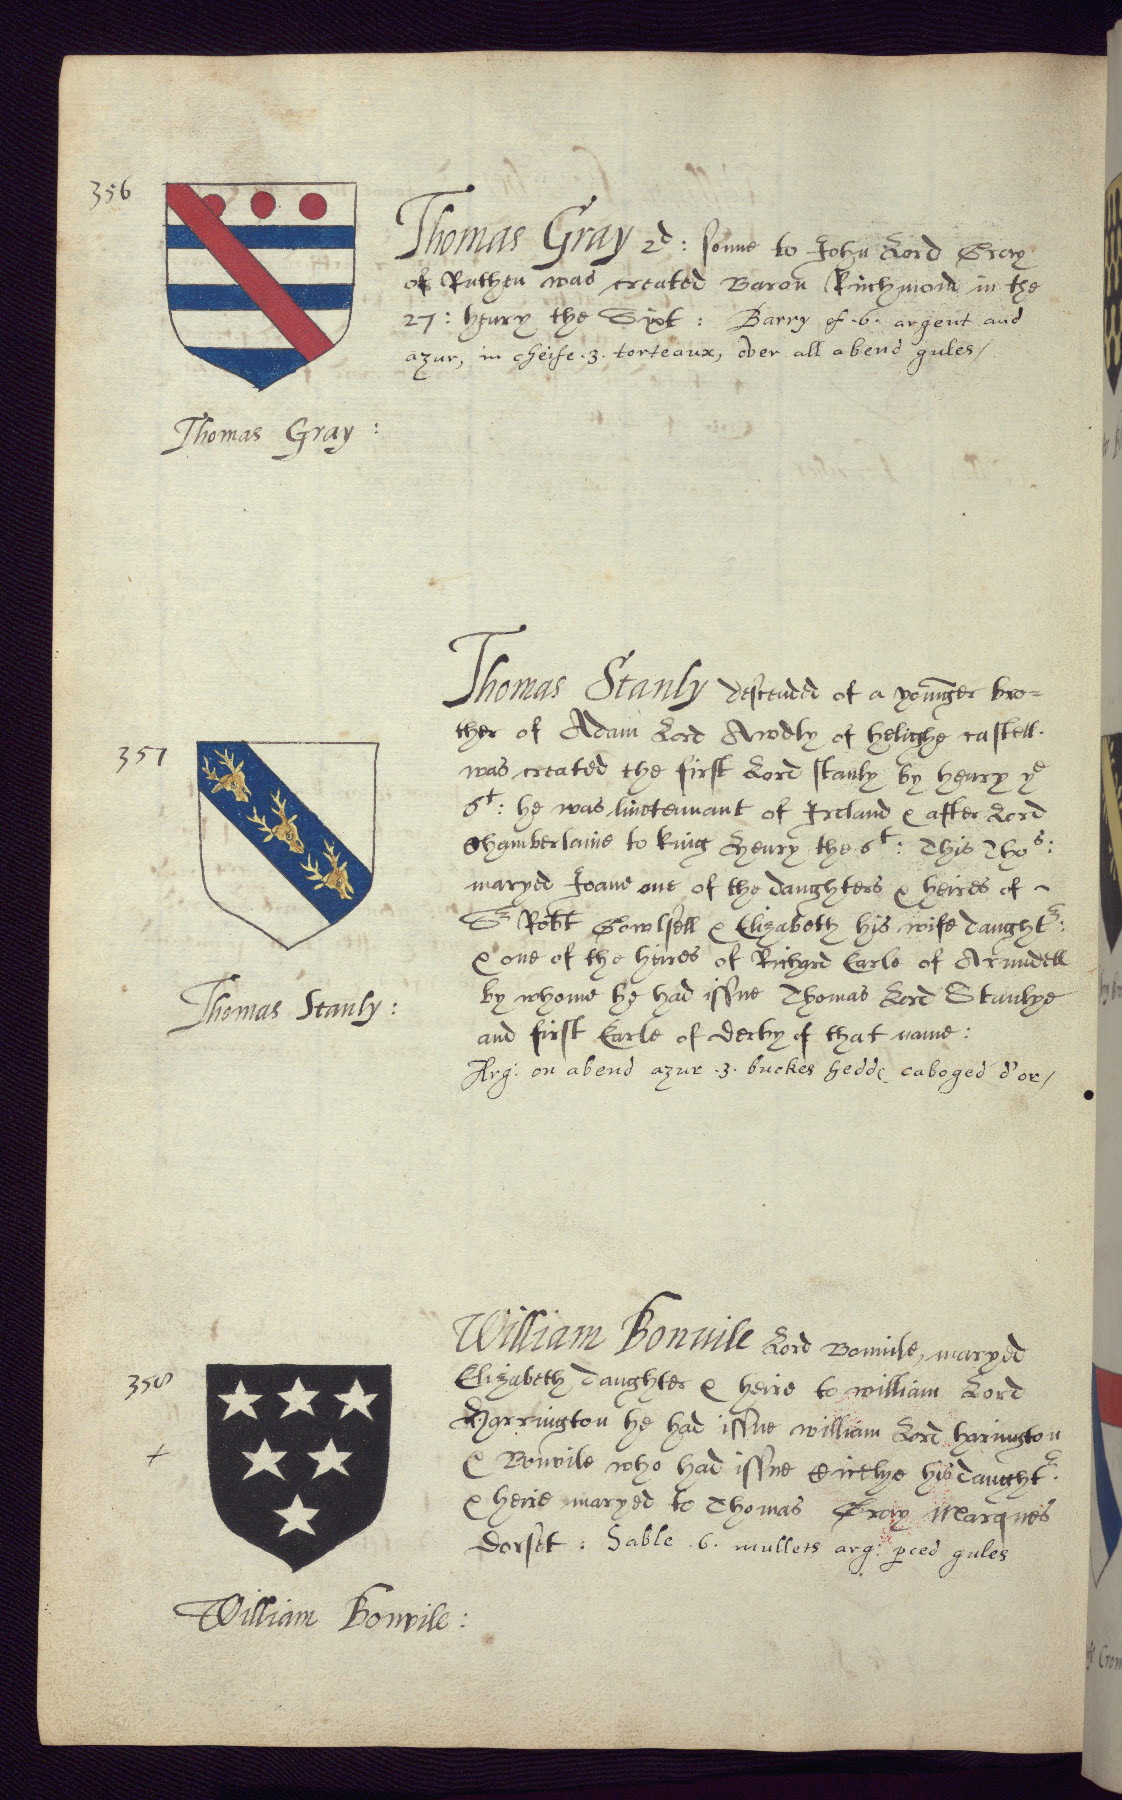 356
Thomas Gray 2d: sonne to John Lord Gray
of Ruthen was created Baron Richmond in the
27: henry the Sixt: Barry of .6. argent and
azur, in cheife .3. torteaux, over all a bend gules/
Thomas Gray:
357
Thomas Stanly descended of a younger bro=
ther of Adam Lord Awdly of Helighe castell.
was created the first Lord stanly by henry ye
6t: he was lieutennant of Ireland & after Lord
Chamberlaine to king Henry the 6t: This Thos:
maryed Joane one of the daughters & heires of ~
Sr Robt Gowlsell & Elizabeth his wife daughtr:
& one of the heires of Richard Earle of Arundell
by whome he had issue Thomas Lord Stanlye
and first Earle of derby of that name:
Arg: on a bend azur .3. buckes hedds caboged d'or/
Thomas Stanly:
358
+
William Bonvile Lord Bonvile, maryed
Elizabeth daughter & heire to william Lord
Harrington he had issue william Lord harington
& Bonvile who had issue Cicelye his daughtr:
& heire maryed to Thomas Gray Marques
dorset: Sable .6. mullets arg: pced gules
William Bonvile: